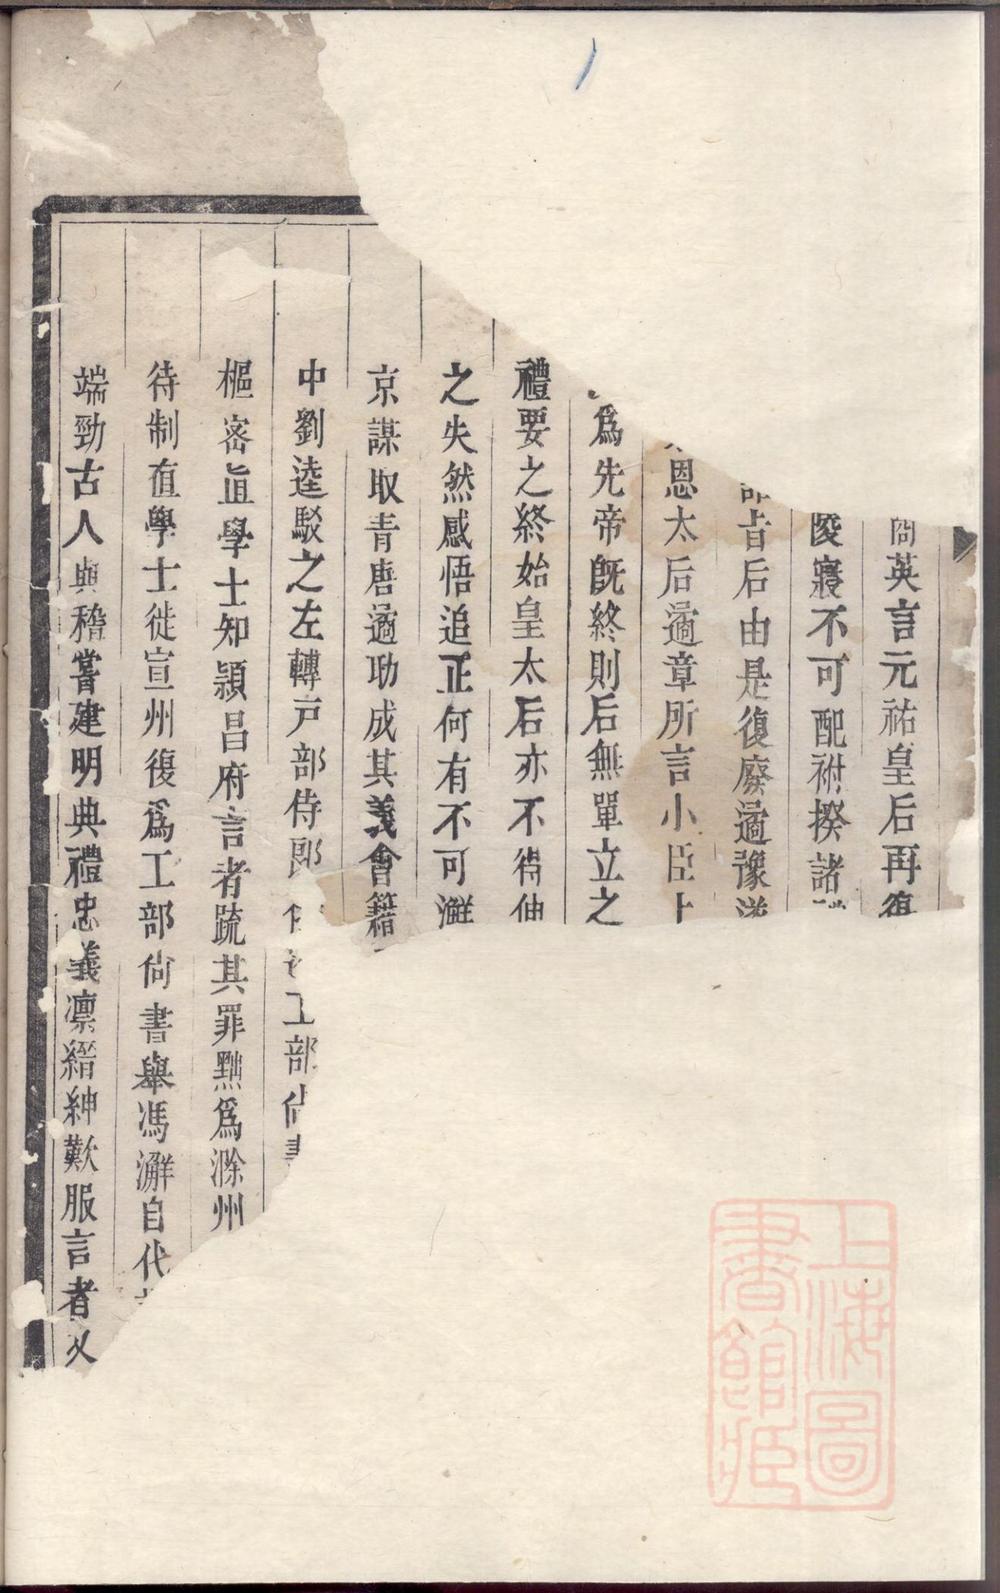 英言元祐皇后再復
陵寢不可配祔揆諸
旨后由是復廢遹豫
恩太后遹章所言小臣上
爲先帝旣終則后無單立之
禮要之終始皇太后亦不得伸
之失然感悟追正何有不可澥
京謀取青唐遹助成其義會籍
中劉逵駁之左轉戸部侍郎 工部尚書
樞密直學士知潁昌府言者疏其罪黜爲滁州
待制直學士徙宣州復爲工部尚書舉馮澥自代
端勁古人與稽嘗建明典禮忠義凛縉紳歎服言者
上海圖
書館藏